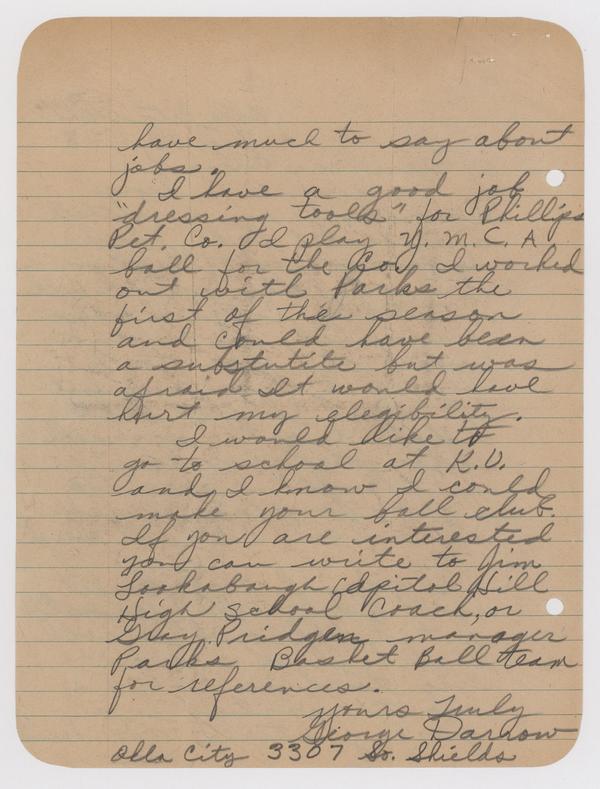 have much to say about
jobs.
I have a good job
"dressing tools" for Phillips
Pet. Co. I play Y. M. C. A.
ball for the Co. I worked
out with Parks the
first of the season
and could have been
a substutite but was
afraid it would have
hurt my elegibility.
I would like to
go to school at K.U.
and I know I could
make your ball club.
If you are interested
you can write to Jim
Lookabaugh Capitol Hill
High School Coach, or
Guy Pridgen manager
Parks Basket Ball team
for references.
Yours Truly
George Darrow
Okla City 3307 So. Shields